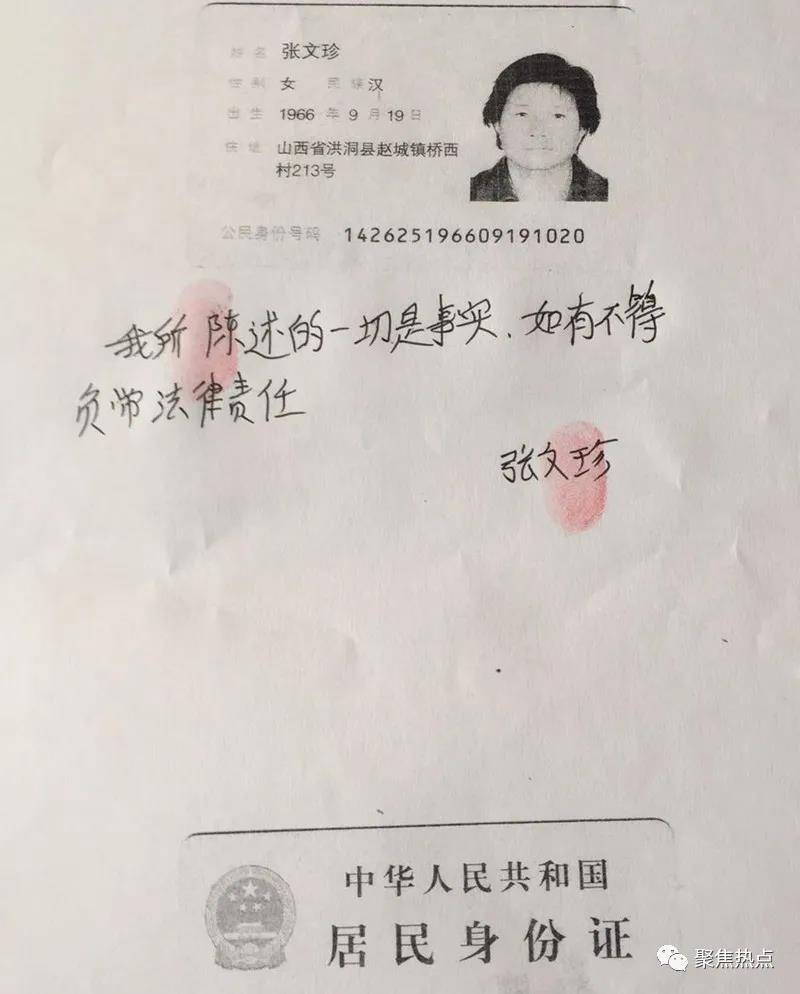 姓名 张文珍
性别 女 民族 汉
出生 1966 年 9 月 19 日
住址 山西省洪洞县赵城镇桥西
村213号
公民身份号码 142625196609191020
我所陈述的一切是事实、如有不得
负带法律责任
张文珍
中华人民共和国
居民身份证
聚焦热点